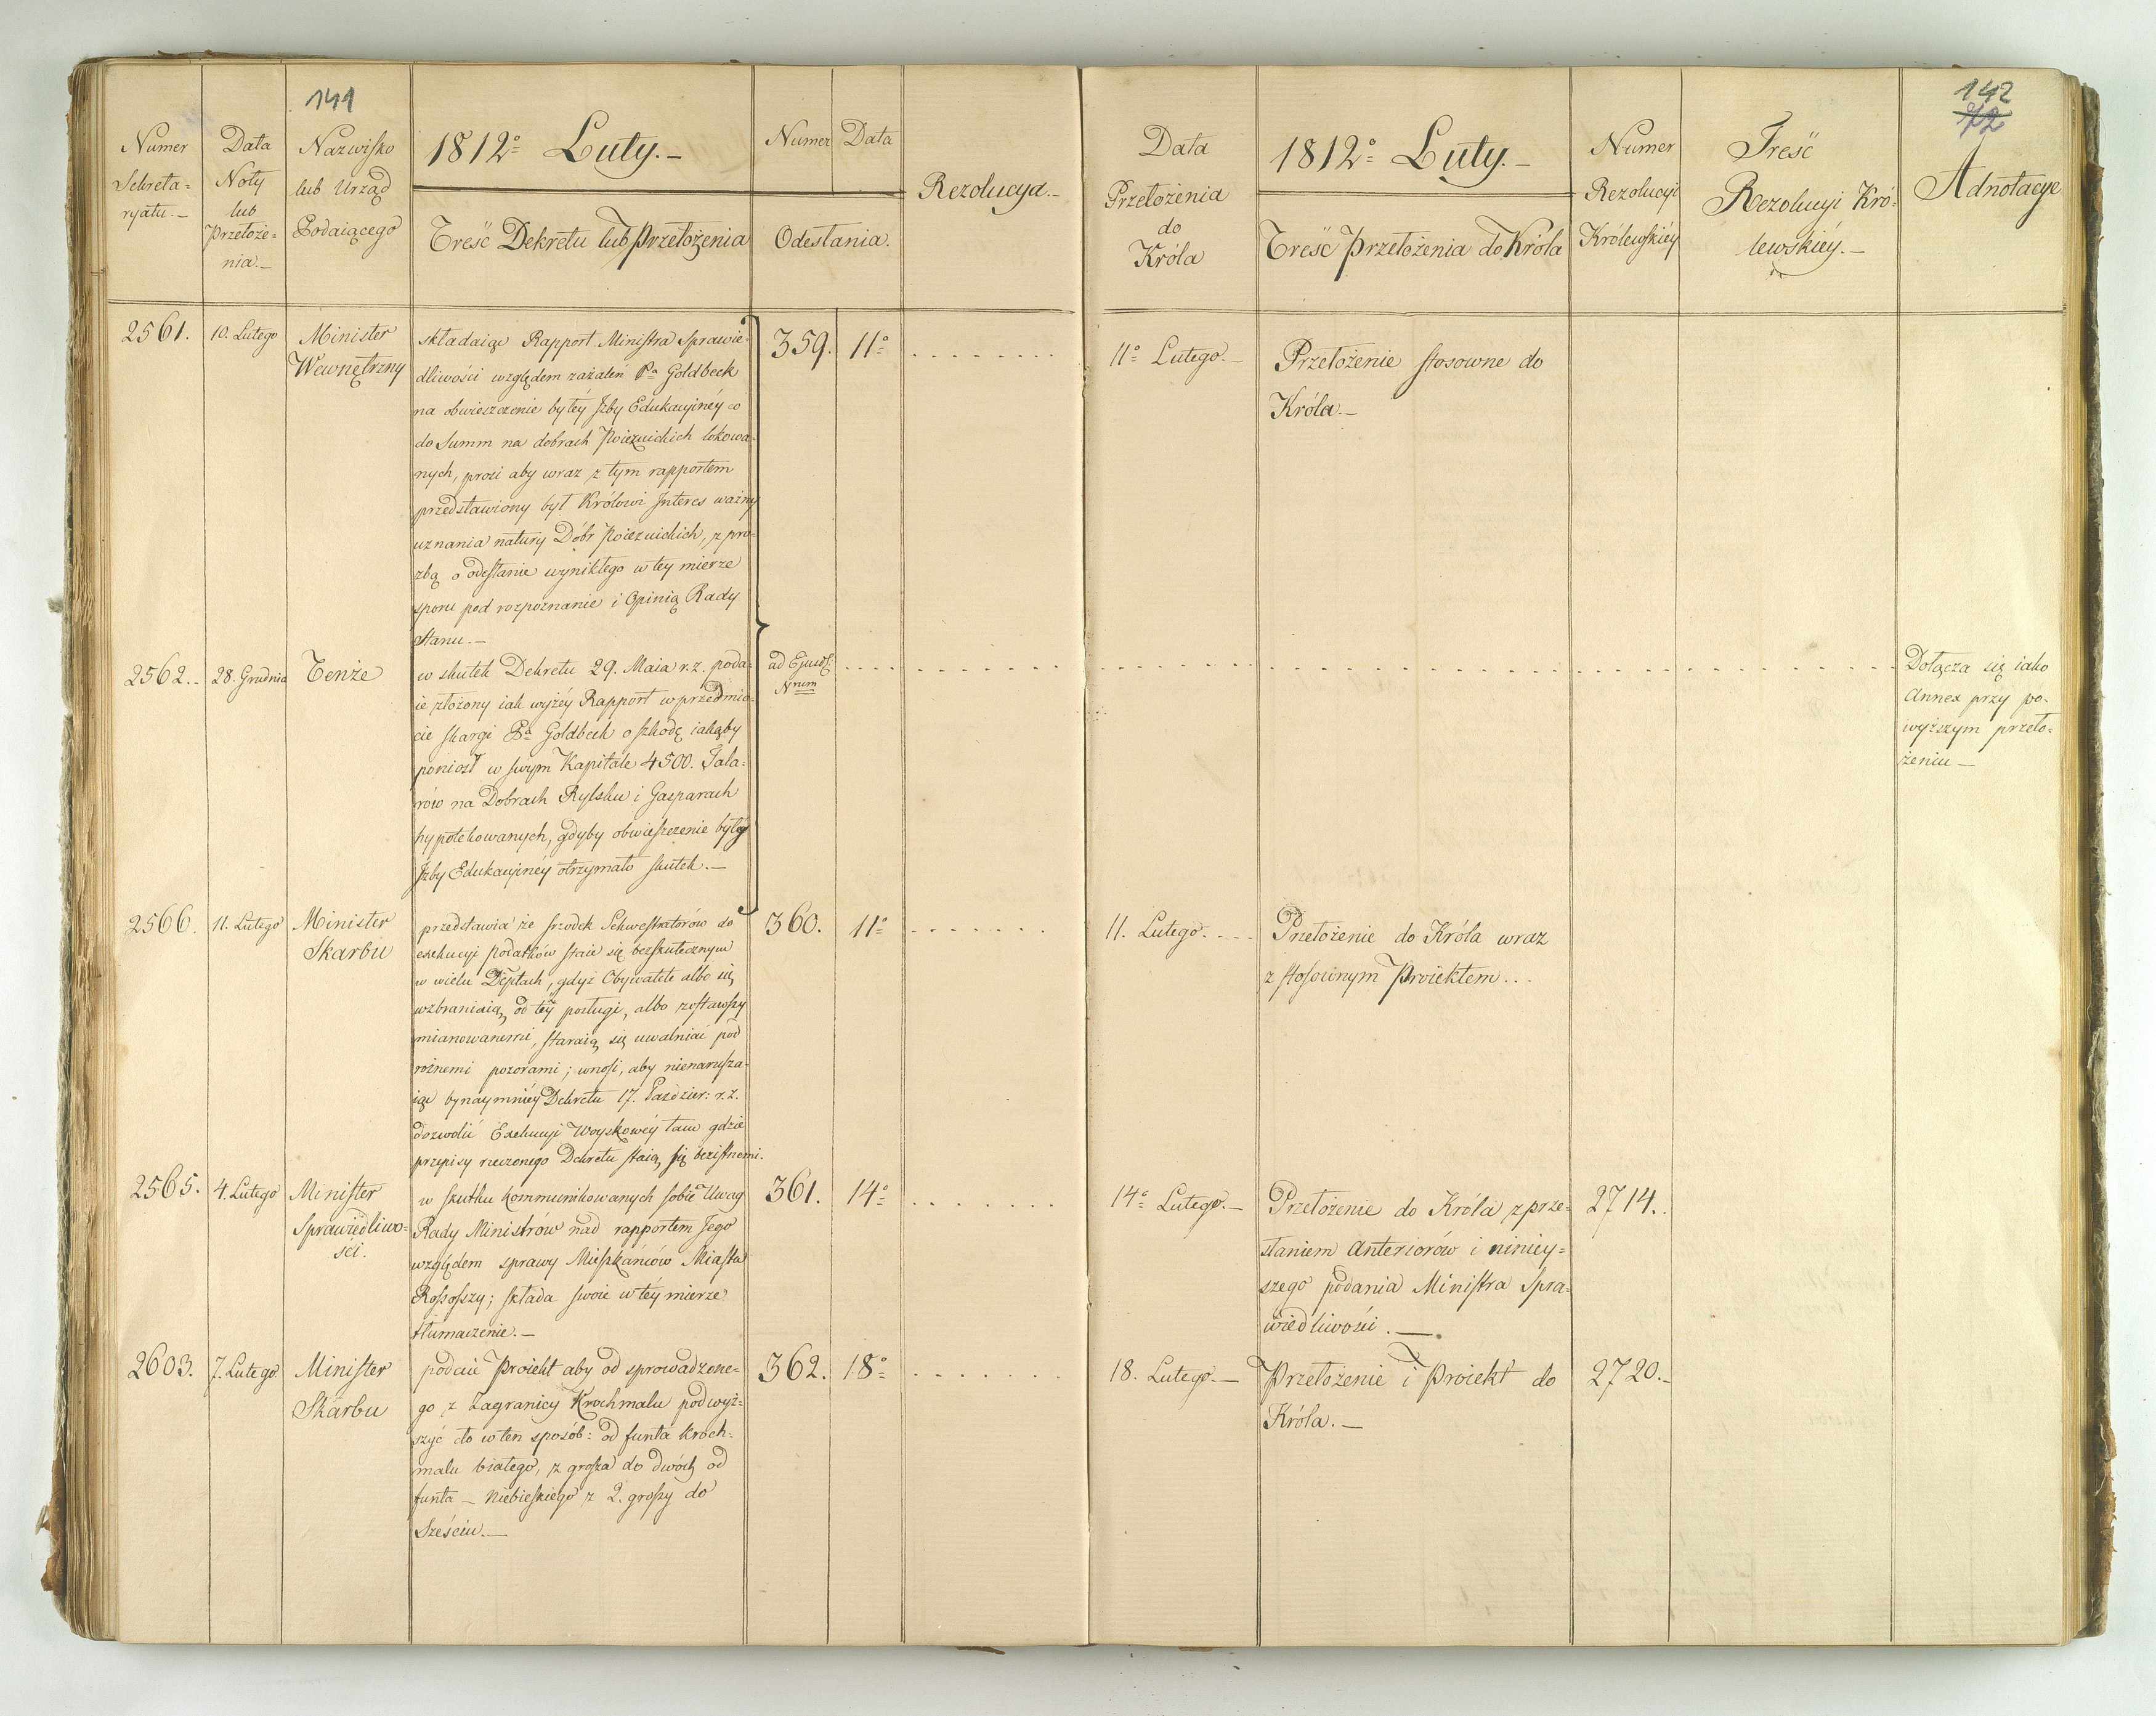 141
Numer
Sekreta=
ryatu.—
Data
Noty
lub
Przełoże=
nia.—
Nazwisko
lub Urząd
Podaiącego
1812º Luty.—
Treść Dekretu lub Przełożenia
Numer Data
Odesłania.
Rezolucya.—
2561. 10. Lutego
Minister
Wewnętrzny
składaiąc Rapport Ministra Sprawie=
dliwości względem zażaleń Pa Goldbeck
na obwieszczenie byłey Izby Edukacyinéy co
do Summ na dobrach Poiezuickich lokowa=
nych, prosi aby wraz z tym rapportem
przedstawiony był Królowi Interes ważny
uznania natury Dóbr Poiezuickich, z pro=
źbą o odesłanie wynikłego w tey mierze
sporu pod rozpoznanie i Opinią Rady
Stanu.—
359. 11º . . . . . . . .
2562.- 28. Grudnia Tenże
w skutek Dekretu 29. Maia r. z. poda=
ie złożony iak wyżéy Rapport w przedmio=
cie skargi Pa Goldbeck o szkodę iakąby
poniosł w swym Kapitale 4500. Tala=
rów na Dobrach Rylsku i Gasparach
hypotekowanych, gdyby obwieszczenie byłéy
Izby Edukacyinéy otrzymało skutek.—
ad Ejusd:
Nrum
2566. 11. Lutego
Minister
Skarbu
przedstawia że srzodek Sekwestratorów do
exekucyi podatków staie się bezskutecznym
w wielu Dęptach, gdyż Obywatele albo się
wzbraniaią od téy posługi, albo zostawszy
mianowanemi, staraią się uwalniać pod
roźnemi pozorami; wnosi, aby nienarusza=
iąc bynaymniéy Dekretu 17. Paździer: r. z.
dozwolić Exekucyi Woyskowéy tam gdzie
przepisy rzeczonego Dekretu staią się bezistnemi.
360. 11º . . . . . . .
2565. 4. Lutego
Minister
Sprawiedliwo=
ści.
w skutku kommunikowanych sobie Uwag
Rady Ministrów nad rapportem Jego
względem sprawy Mieszkańców Miasta
Rossoszy; składa swoie w téy mierze
tłumaczenie.—
361. 14º . . . . . . .
2603. 7. Lutego
Minister
Skarbu
podaie Proiekt aby od sprowadzone=
go z Zagranicy Krochmalu podwyż=
szyć cło w ten sposób: od funta Kroch=
malu białego, z grosza do dwóch od
funta — Niebieskiego z 2. groszy do
Sześciu.—
362. 18º . . . . . . .
142
72
Data
Przełożenia
do
Króla
1812º Luty.—
Treść Przełożenia do Króla
Numer
Rezolucyi
Królewskiéy
Treść
Rezolucyi Kró=
lewskiéy.—
Adnotacye
11º Lutego.—
Przełożenie stosowne do
Króla.—
Dołącza się iako
Annex przy po=
wyższym przeło=
żeniu —
11. Lutego. . . .
Przełożenie do Króla wraz
z stosownym Proiektem . . .
14º Lutego.—
Przełożenie do Króla z prze=
słaniem Anteriorów i niniey=
szego podania Ministra Spra=
wiedliwości.—
2714.
18. Lutego.—
Przełożenie i Proiekt do
Króla.—
2720.-